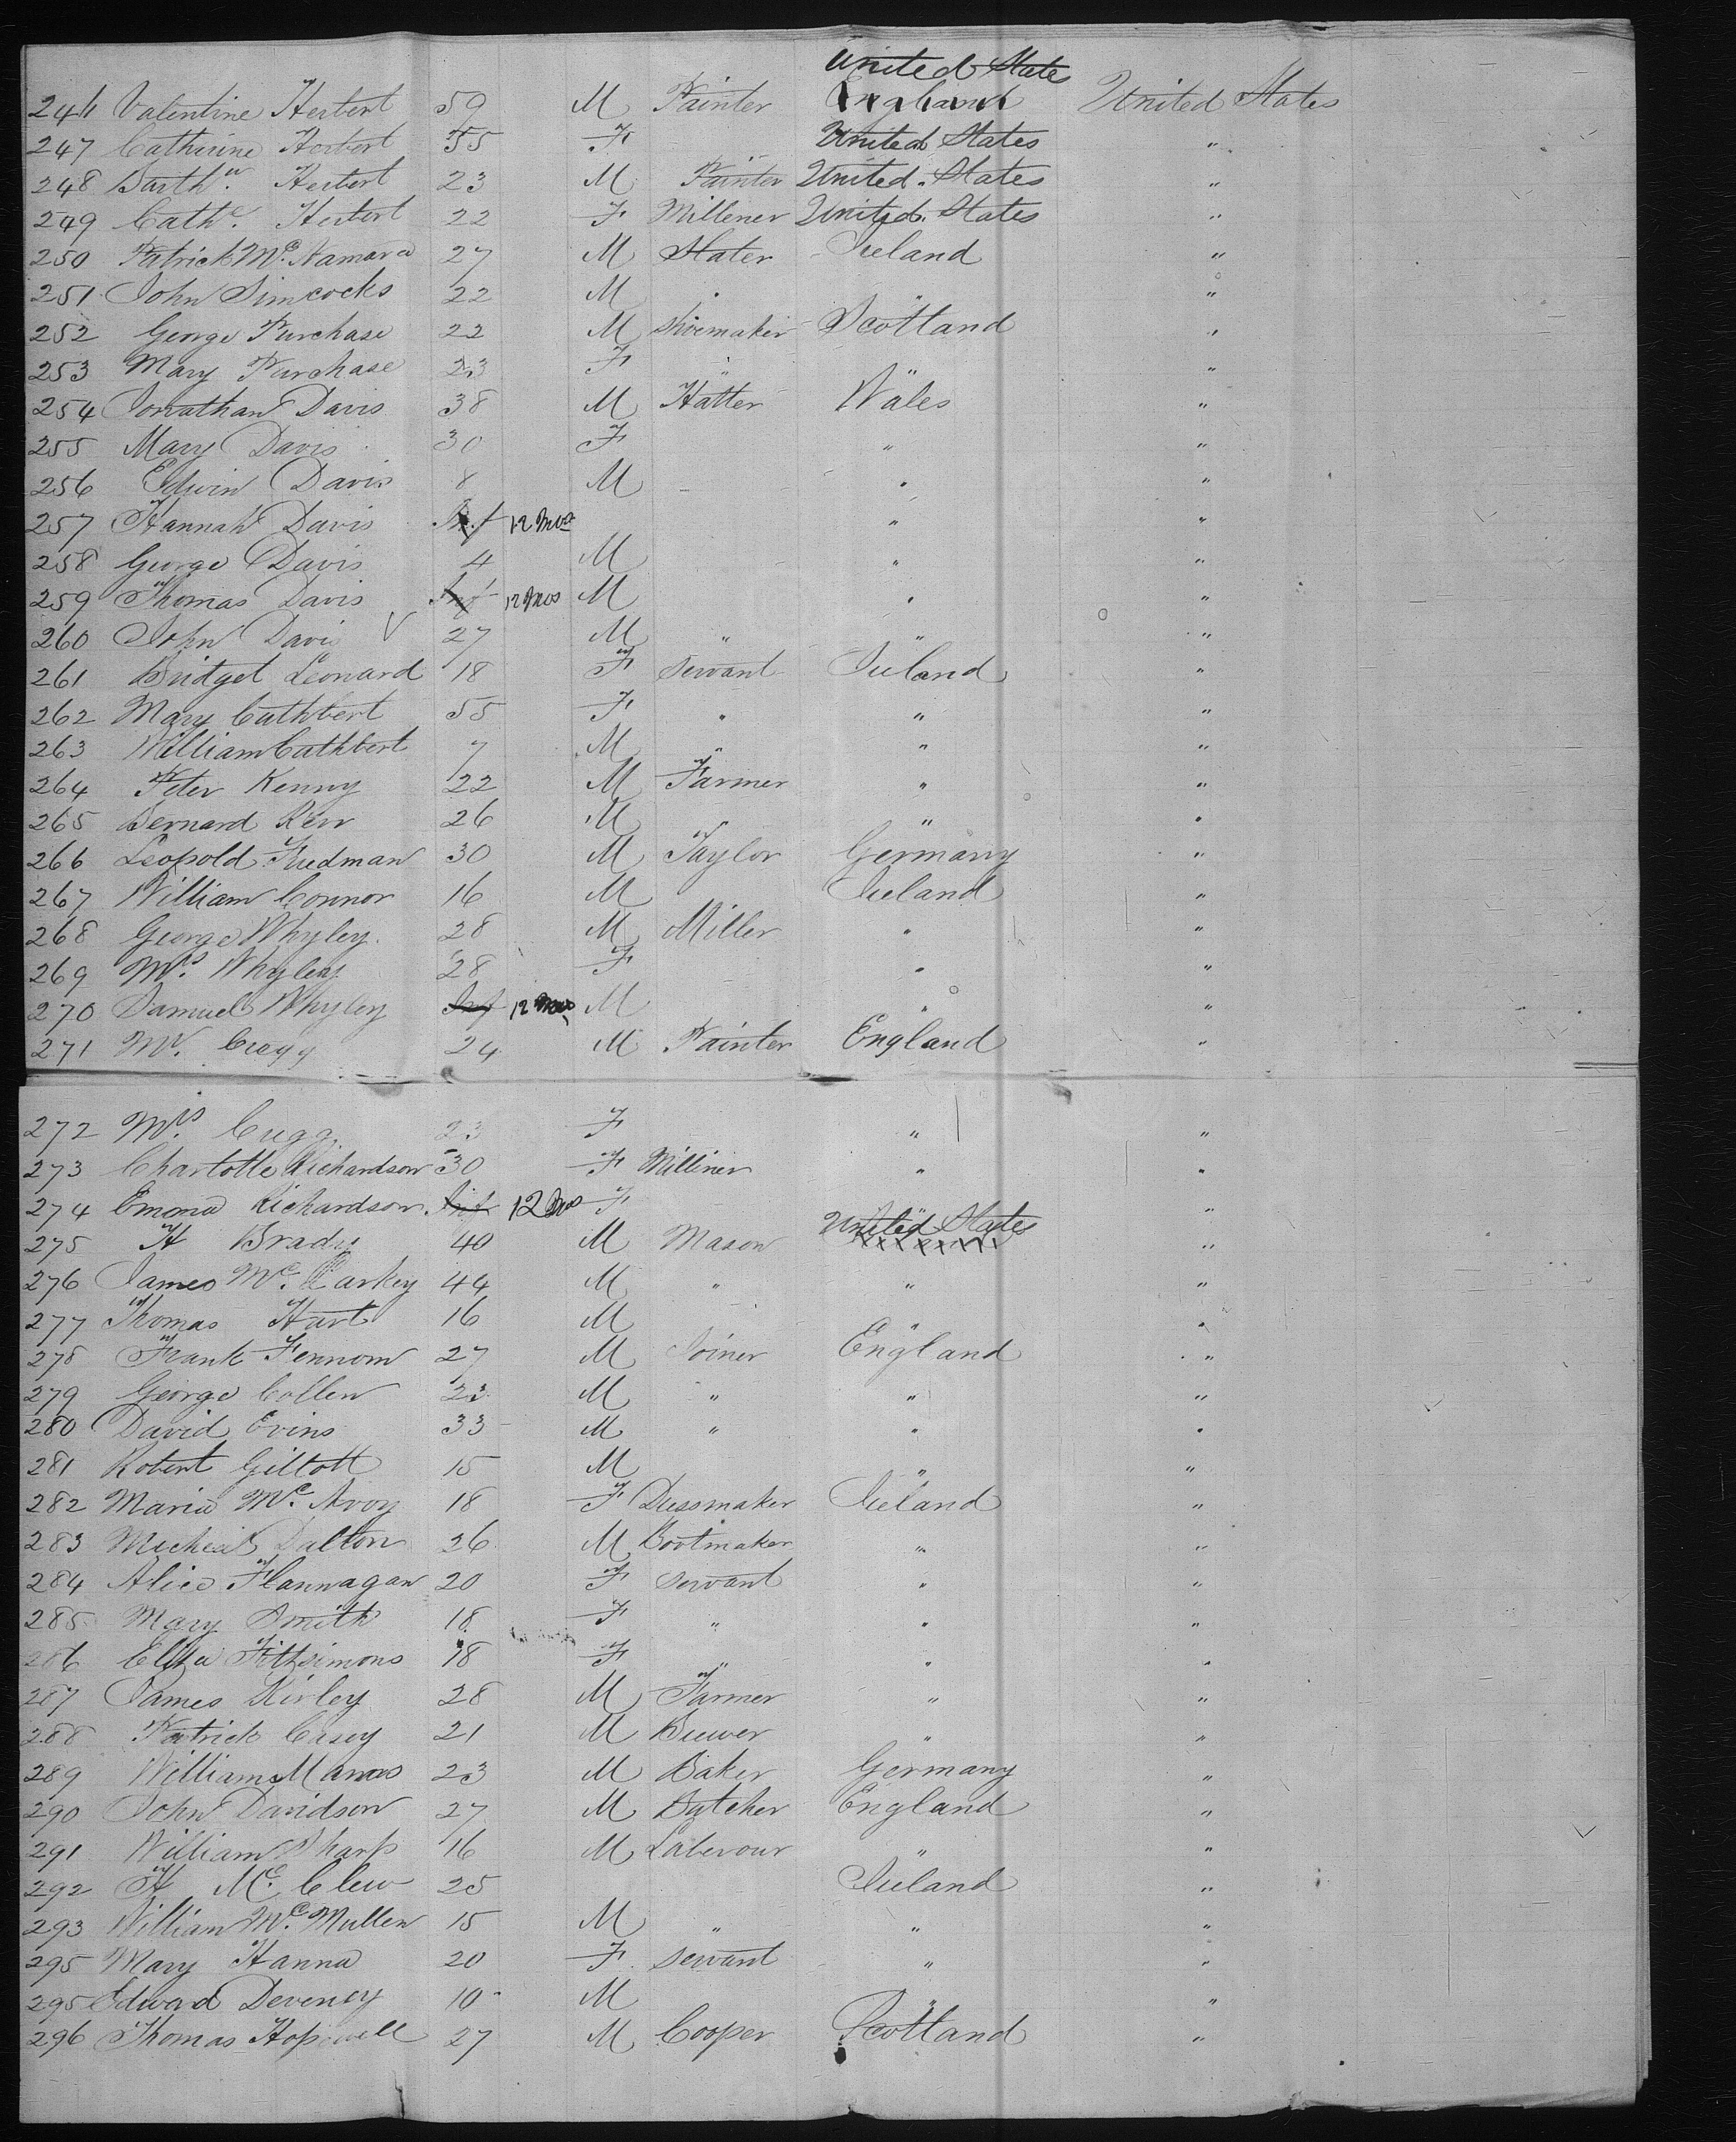 United State
246 Valentine Herbert 59 M Painter England United States
247 Catherine Herbert 55 F United States "
248 Barthw. Herbert 23 M Painter United States "
249 Cathe. Herbert 22 F Millener United States "
250 Patrick Mc. Namara 27 M Slater Ireland "
251 John Simcocks 22 M " " "
252 George Purchase 22 M Shoemaker Scotland "
253 Mary Purchase 23 F " " "
254 Jonathan Davis 38 M Hatter Wales "
255 Mary Davis 30 F " "
256 Edwin Davis 8 M " "
257 Hannah Davis Inf 12 Mos " "
258 George Davis 4 M " "
259 Thomas Davis Inf 12 Mos M " "
260 John Davis 27 M " " "
261 Bridget Leonard 18 F Servant Ireland "
262 Mary Cuthbert 55 F " " "
263 William Cuthbert 7 M " " "
264 Peter Kenny 22 M Farmer " "
265 Bernard Kerr 26 M " " "
266 Leopold Friedman 30 M Taylor Germany "
267 William Connor 16 M Ireland "
268 George Whyley 28 M Miller " "
269 Mrs. Whyley 28 F " "
270 Samuel Whyley Inf 12 Mos M " "
271 Mr. Cragg 24 M Painter England "
272 Mrs. 23 F " "
273 Charlotte Richardson 30 F Milliner " "
274 Emma Richardson Inf 12 Mos F " "
275 H Brady 40 M Mason United States "
276 James Mc. Carkey 44 M " " "
277 Thomas Hart 16 M " "
278 Frank Fennom 27 M Joiner England "
279 George Collen 23 M " " "
280 David Evins 33 M " " "
281 Robert Giltott 15 M " "
282 Maria Mc. Avoy 18 F Dressmaker Ireland "
283 Micheal Dalton 26 M Bootmaker " "
284 Alice Flannagan 20 F Servant " "
285 Mary Smith 18 F " " "
286 Eliza Fitzsimons 18 F " " "
287 James Kirley 28 M Farmer " "
288 Patrick Casey 21 M Brewer " "
289 William Manas 23 M Baker Germany "
290 John Davidson 27 M Butcher England "
291 William Sharp 16 M Laberour " "
292 H Mc. Clew 25 Ireland "
293 William Mc. Mullen 15 M " " "
295 Mary Hanna 20 F Servant " "
295 Edward Deveney 10 M " "
296 Thomas Hopwell 27 M Cooper Scotland "